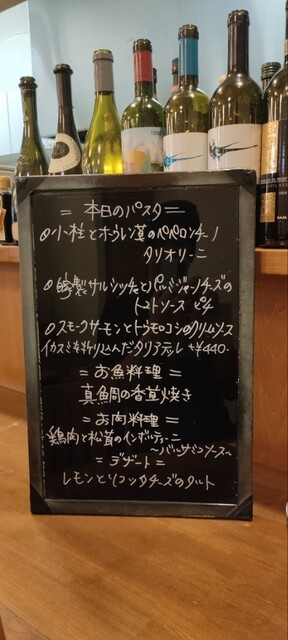 ＝本日のパスタ＝
○小柱とホウレン草のペペロンチーノ
タリオリーニ
○特製サルシッチャとパルミジャーノチーズの
トマトソース ピチ
○スモークサーモンとトウモロコシのクリームソース
イカスミを折り込んだタリアテレ +¥440-
＝お魚料理＝
真鯛の香草焼き
＝お肉料理＝
鶏肉と松茸のインボルティーニ
〜バルサミコソース〜
＝デザート＝
レモンとリコッタチーズのタルト